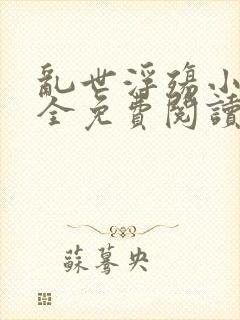 亂世浮殤小
全免費閱讀
蘇驀央